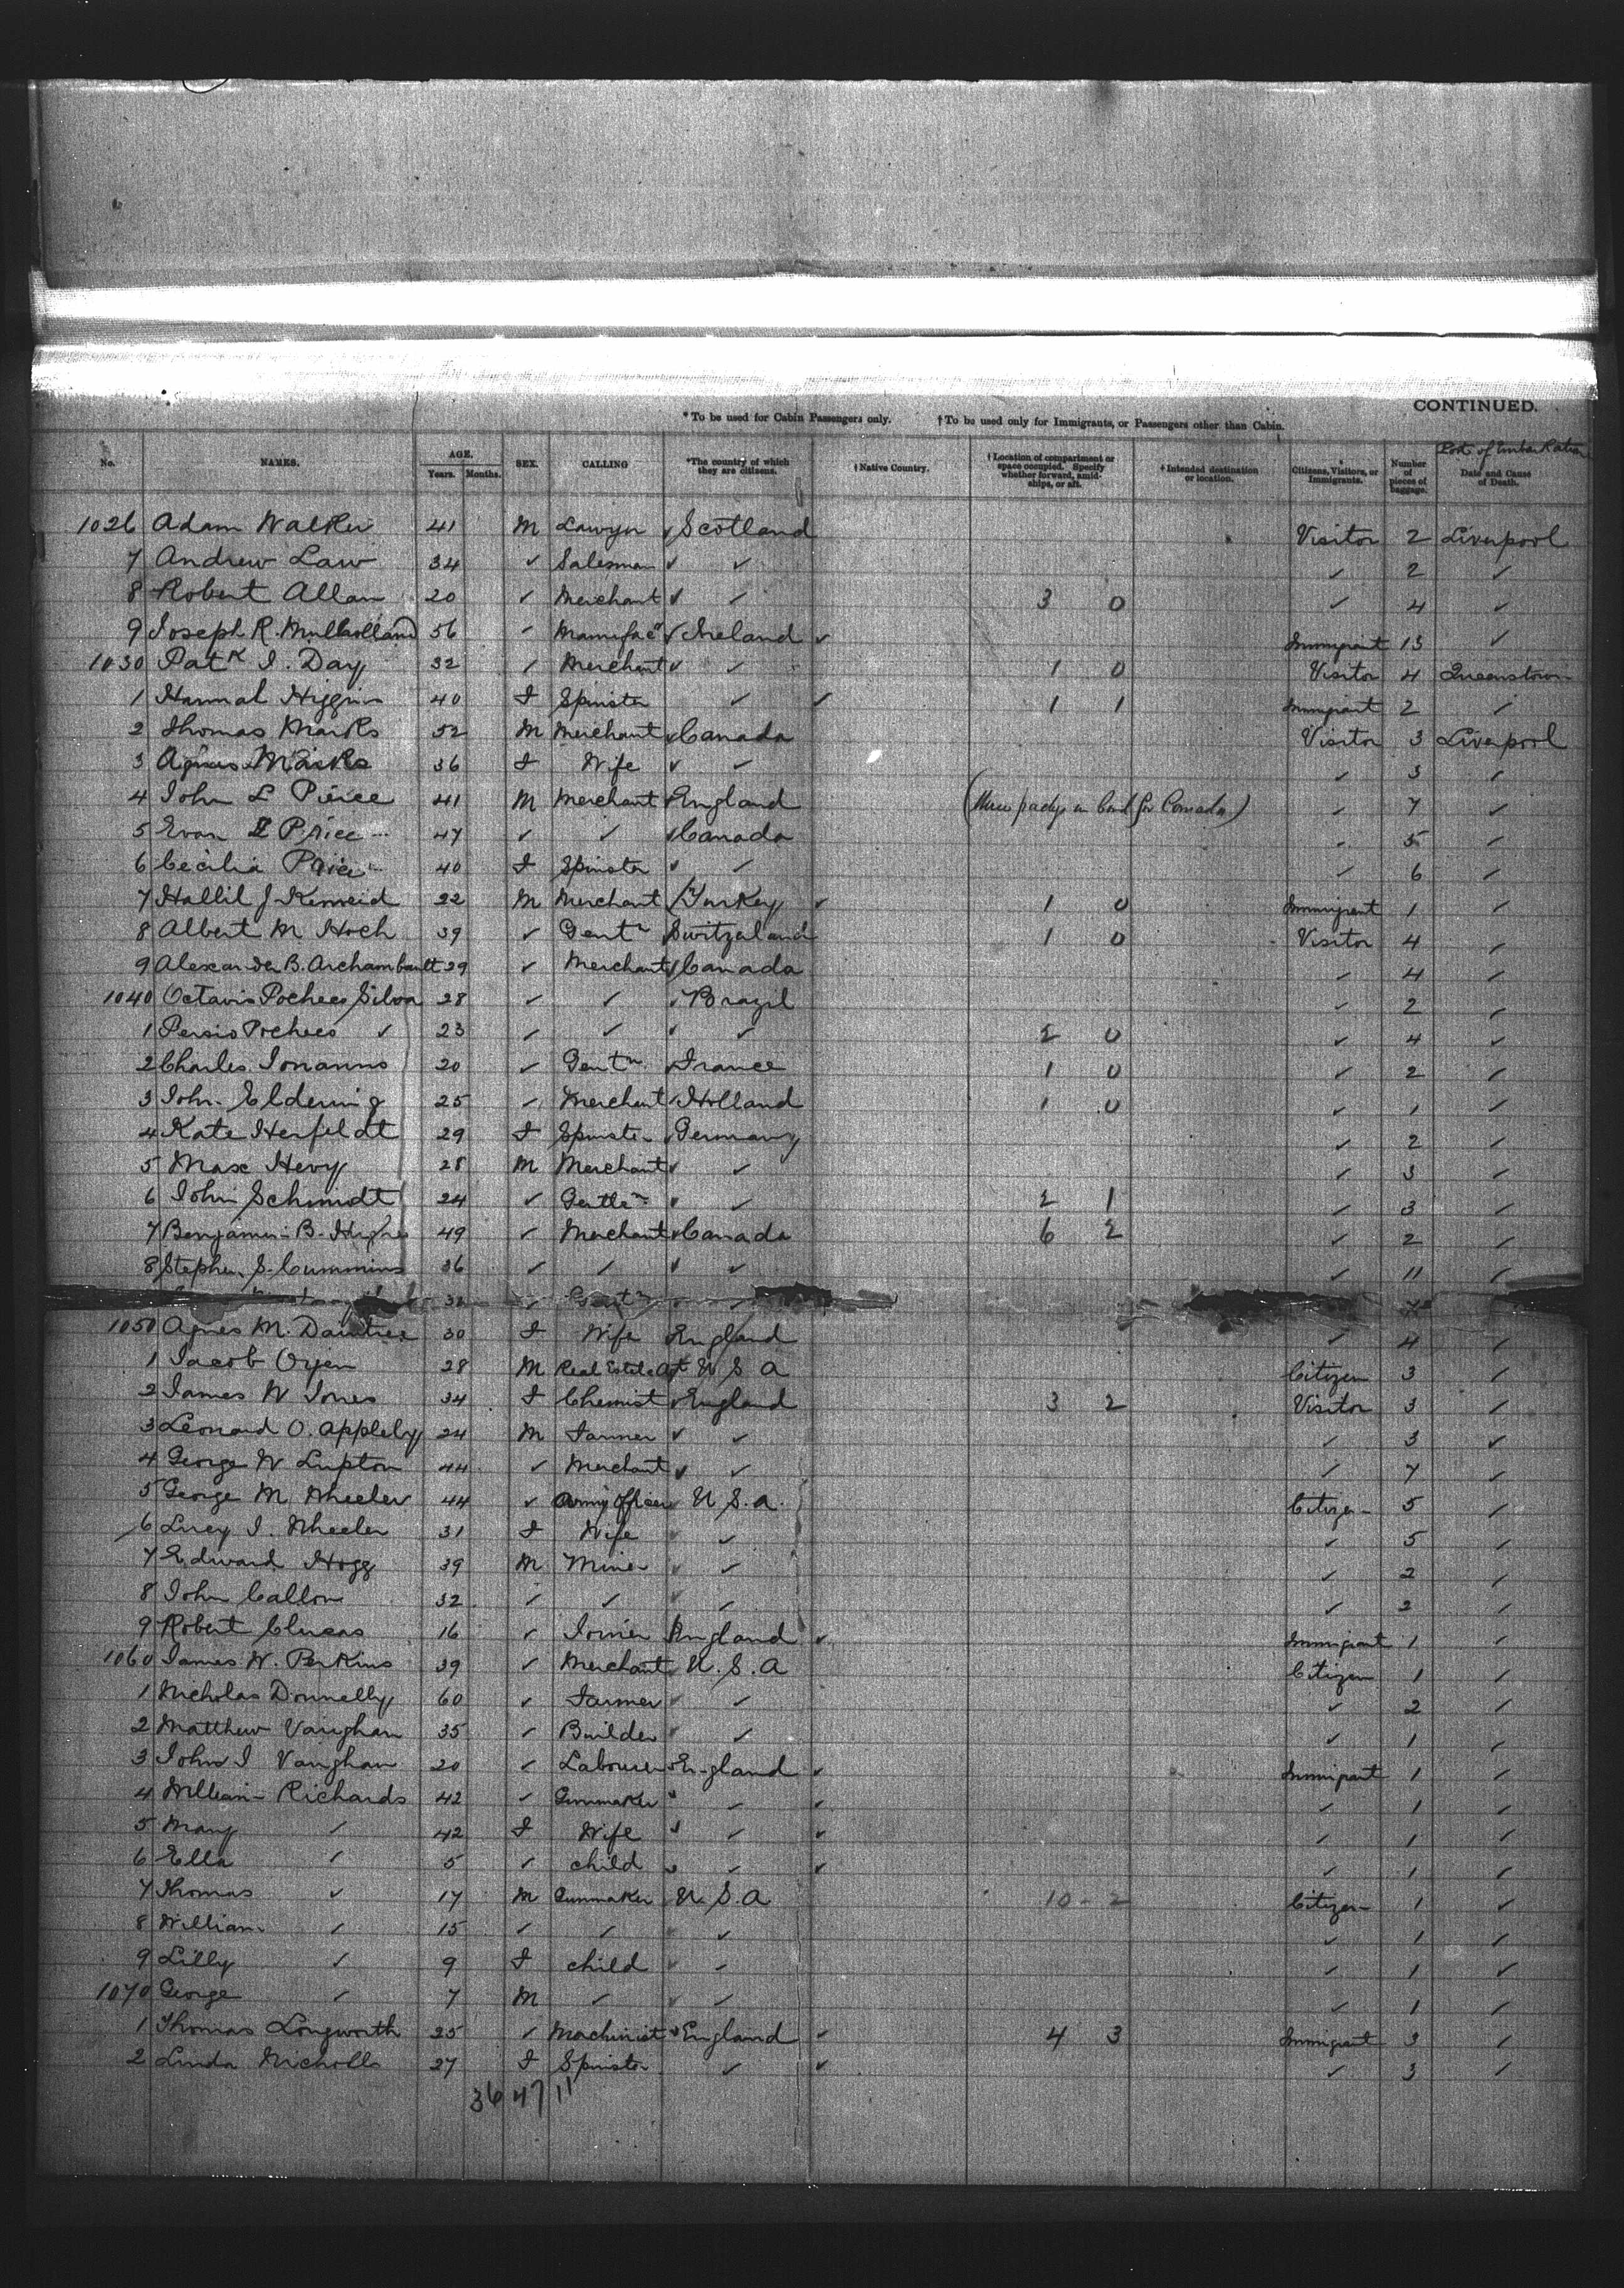 CONTINUED.
*To be used for Cabin Passengers only. †To be used only for Immigrants, or Passengers other than Cabin.
No. NAMES. AGE. Years. Months. SEX. CALLING *The country of which they are citizens. †Native Country. †Location of compartment or space occupied. Specify whether forward, amidships, or aft. †Intended destination or location. Citizens, Visitors, or Immigrants. Number of pieces of baggage. Port of Embarkation Date and Cause of Death.
1026 Adam Walker 41 M Lawyer Scotland Visitor 2 Liverpool
7 Andrew Law 34 ✓ Salesman ✓ ✓ ✓ 2 ✓
8 Robert Allan 20 ✓ Merchant ✓ ✓ 3 0 ✓ 4 ✓
9 Joseph R. Mullholland 56 ✓ Manufacr ✓ Ireland ✓ Immigrant 13 ✓
1030 Patk J. Day 32 ✓ Merchant ✓ ✓ 1 0 Visitor 4 Queenstown
1 Hannah Higgins 40 F Spinster ✓ ✓ 1 1 Immigrant 2 ✓
2 Thomas Marks 52 M Merchant Canada Visitor 3 Liverpool
3 Agnes Marks 36 F Wife ✓ ✓ ✓ 3 ✓
4 John L Pierce 41 M Merchant England for Canada) ✓ 7 ✓
5 Evan Price 47 ✓ ✓ Canada ✓ 5 ✓
6 Cecilia Price 40 F Spinster ✓ ✓ ✓ 6 ✓
7 Hallil J 22 M Merchant Turkey ✓ 1 0 Immigrant 1 ✓
8 Albert M Hoch 39 ✓ Gentn Switzerland 1 0 Visitor 4 ✓
9 Alexander B. Archambault 29 ✓ Merchant Canada ✓ 4 ✓
1040 Octavio Pochees Silva 28 ✓ ✓ ✓ Brazil ✓ 2 ✓
1 Persio Pochees ✓ 23 ✓ ✓ ✓ ✓ 2 0 ✓ 4 ✓
2 Charles 20 ✓ Gentn. France 1 0 ✓ 2 ✓
3 John Eldering 25 ✓ Merchant Holland 1 0 ✓ 1 ✓
4 Kate Herfeldt 29 F Spinster Germany ✓ 2 ✓
5 Max Hevy 28 M Merchant ✓ ✓ ✓ 3 ✓
6 John Schmidt 24 ✓ Gentle ✓ ✓ 2 1 ✓ 3 ✓
7 Benjamin B. Hughes 49 ✓ Merchant Canada 6 2 ✓ 2 ✓
8 Stephen S. Cummins 36 ✓ ✓ ✓ ✓ ✓ 11 ✓
✓ Gentn
1050 Agnes M. Daintree 30 F Wife England ✓ 4 ✓
1 Jacob Oyen 28 M Real Estate Agt U S A Citizen 3 ✓
2 James W Jones 34 F Chemist England 3 2 Visitor 3 ✓
3 Leonard O. Appleby 24 M Farmer ✓ ✓ ✓ 3 ✓
4 George W Lupton 44 ✓ Merchant ✓ ✓ ✓ 7 ✓
5 George M. Wheeler 44 ✓ Army Officer U. S. A. Citizen 5 ✓
6 Lucy J. Wheeler 31 F Wife ✓ ✓ ✓ 5 ✓
7 Edward Hogg 39 M Miner ✓ ✓ ✓ 2 ✓
8 John Callow 32 ✓ ✓ ✓ ✓ ✓ 2 ✓
9 Robert Clucas 16 ✓ Joiner England ✓ Immigrant 1 ✓
1060 James W. Perkins 39 ✓ Merchant U. S. A Citizen 1 ✓
1 Nicholas Donnelly 60 ✓ Farmer ✓ ✓ ✓ 2 ✓
2 Matthew Vaughan 35 ✓ Builder ✓ ✓ ✓ 1 ✓
3 John J Vaughan 20 ✓ Labourer England ✓ Immigrant 1 ✓
4 William Richards 42 ✓ Gunmaker " ✓ ✓ ✓ 1 ✓
5 Mary ✓ 42 F Wife ✓ ✓ ✓ ✓ 1 ✓
6 Ella ✓ 5 ✓ child ✓ ✓ ✓ ✓ 1 ✓
7 Thomas ✓ 17 M Gunmaker U. S. A 10 - 2 Citizen 1 ✓
8 William ✓ 15 ✓ ✓ ✓ ✓ 1 ✓
9 Lilly ✓ 9 F child ✓ ✓ ✓ 1 ✓
1070 George ✓ 7 M ✓ ✓ ✓ ✓ 1 ✓
1 Thomas Longworth 25 ✓ Machinist England ✓ 4 3 Immigrant 3 ✓
2 Linda Nicholls 27 F Spinster ✓ ✓ ✓ 3 ✓
36 47 11